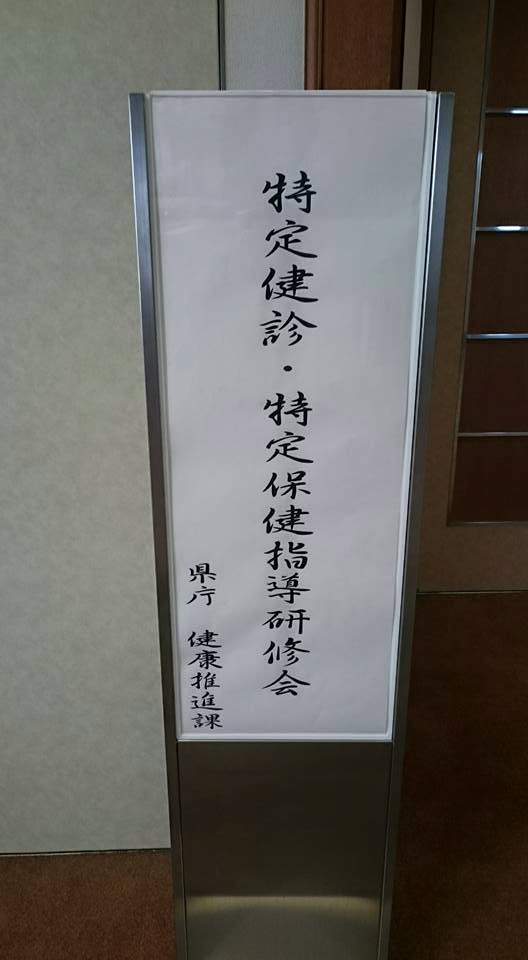 特定健診・特定保健指導研修会
県庁 健康推進課